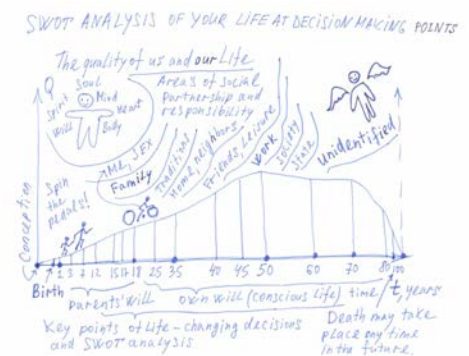 SWOT ANALYSIS OF YOUR LIFE AT DECISION MAKING POINTS
The quality of us and our Life
Q
Soul
Spirit
Mind
Heart
Will
Body
Areas of social
partnership and
responsibility
ME, SEX
Family
Traditions
Home, neighbors
Friends, Leisure
Work
Society
State
Unidentified
Spin
the
pedals!
Conception
1 2 7 12 15 17 18 25 35 40 45 50 60 70 80 100
Birth
parents' will
own will (conscious life) time
t, years
Key points of Life-changing decisions
and SWOT analysis
Death may take
place any time
in the future.